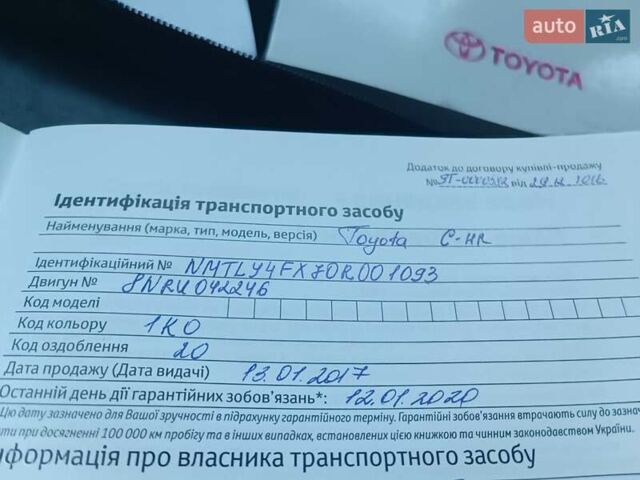 auto RIA .com
TOYOTA
Додаток до договору купівлі-продажу
№ від 29.12.2016
Ідентифікація транспортного засобу
Найменування (марка, тип, модель, версія) Toyota C-HR
Ідентифікаційний № NMTLY4FX70R001093
Двигун № 8NRU042246
Код моделі
Код кольору 1K0
Код оздоблення 20
Дата продажу (Дата видачі) 13.01.2017
Останній день дії гарантійних зобов'язань*: 12.01.2020
Цю дату зазначено для Вашої зручності в підрахунку гарантійного терміну. Гарантійні зобов'язання втрачають силу до зазнач
ти при досягненні 100 000 км пробігу та в інших випадках, встановлених цією книжкою та чинним законодавством України.
нформація про власника транспортного засобу